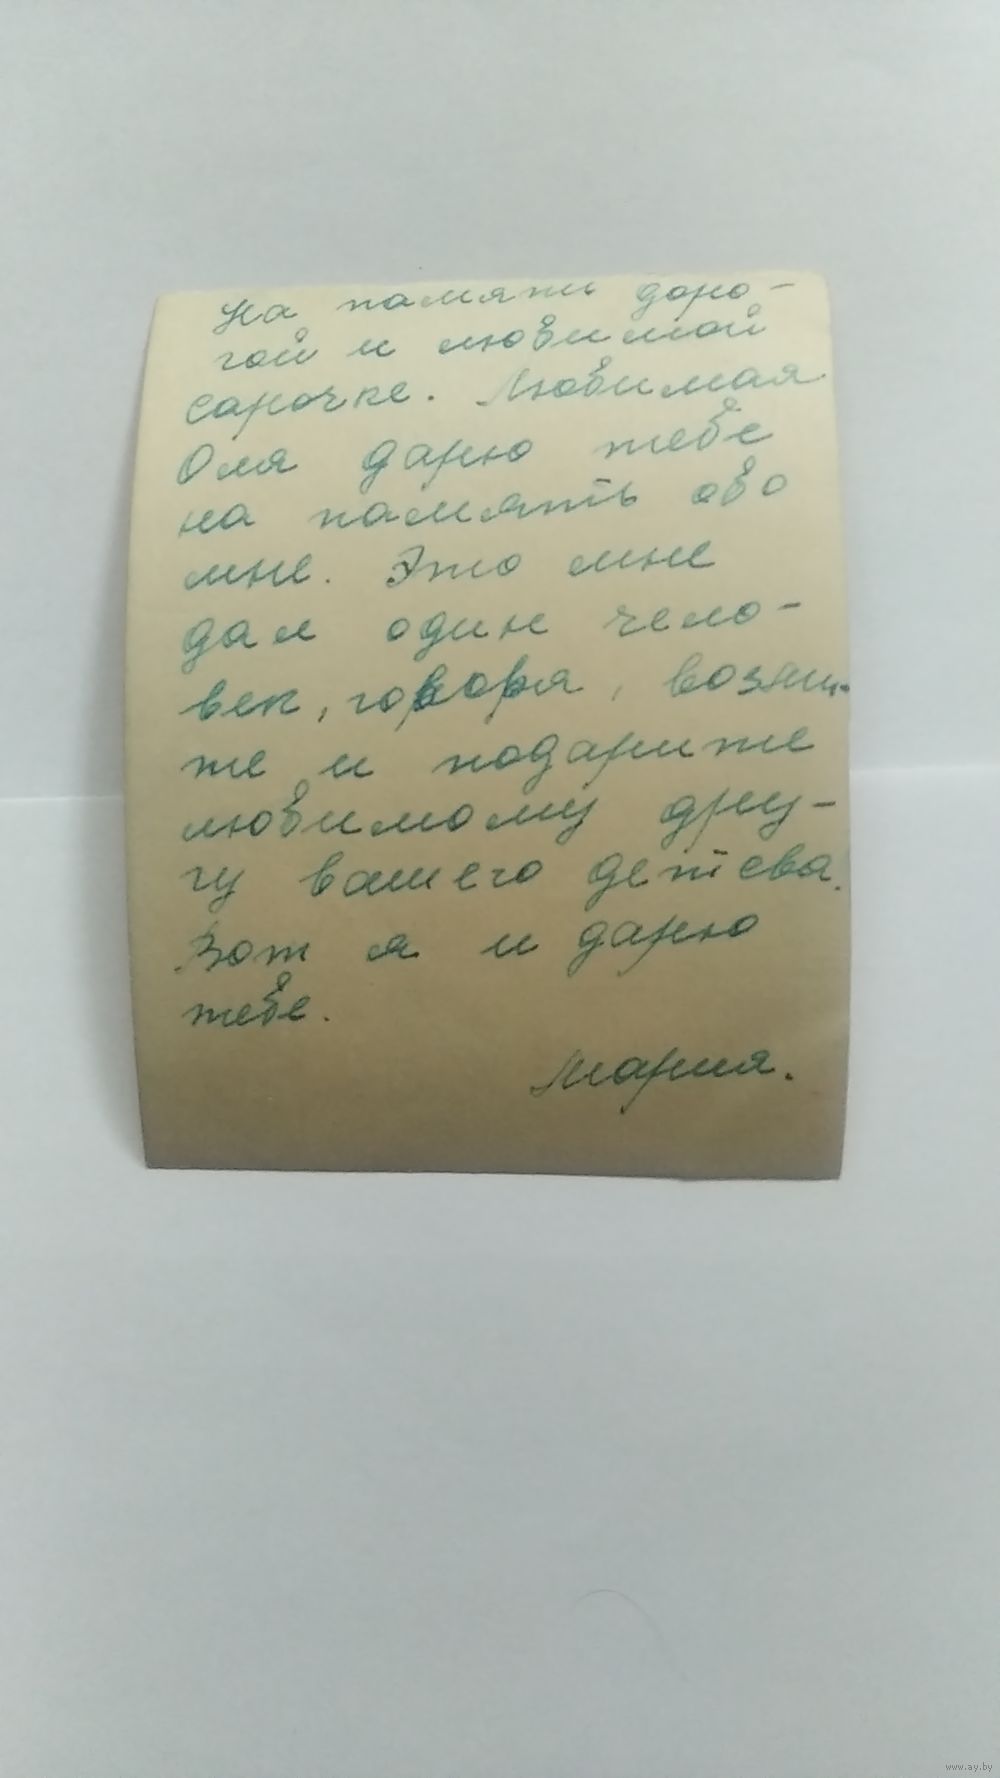 На память доро-
гой и любимой
сарочке. Любимая
Оля дарю тебе
на память обо
мне. Это мне
дал один чело-
век, говоря, возми-
те и подарите
любимому дру-
гу вашего детсва.
Вот я и дарю
тебе.
Мария.
www.ay.by